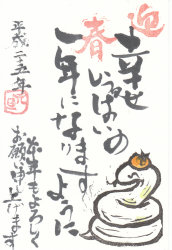 迎
春
幸せ
いっぱいの
一年になります
ように
本年もよろしく
お願い申し上げます
平成二十五年